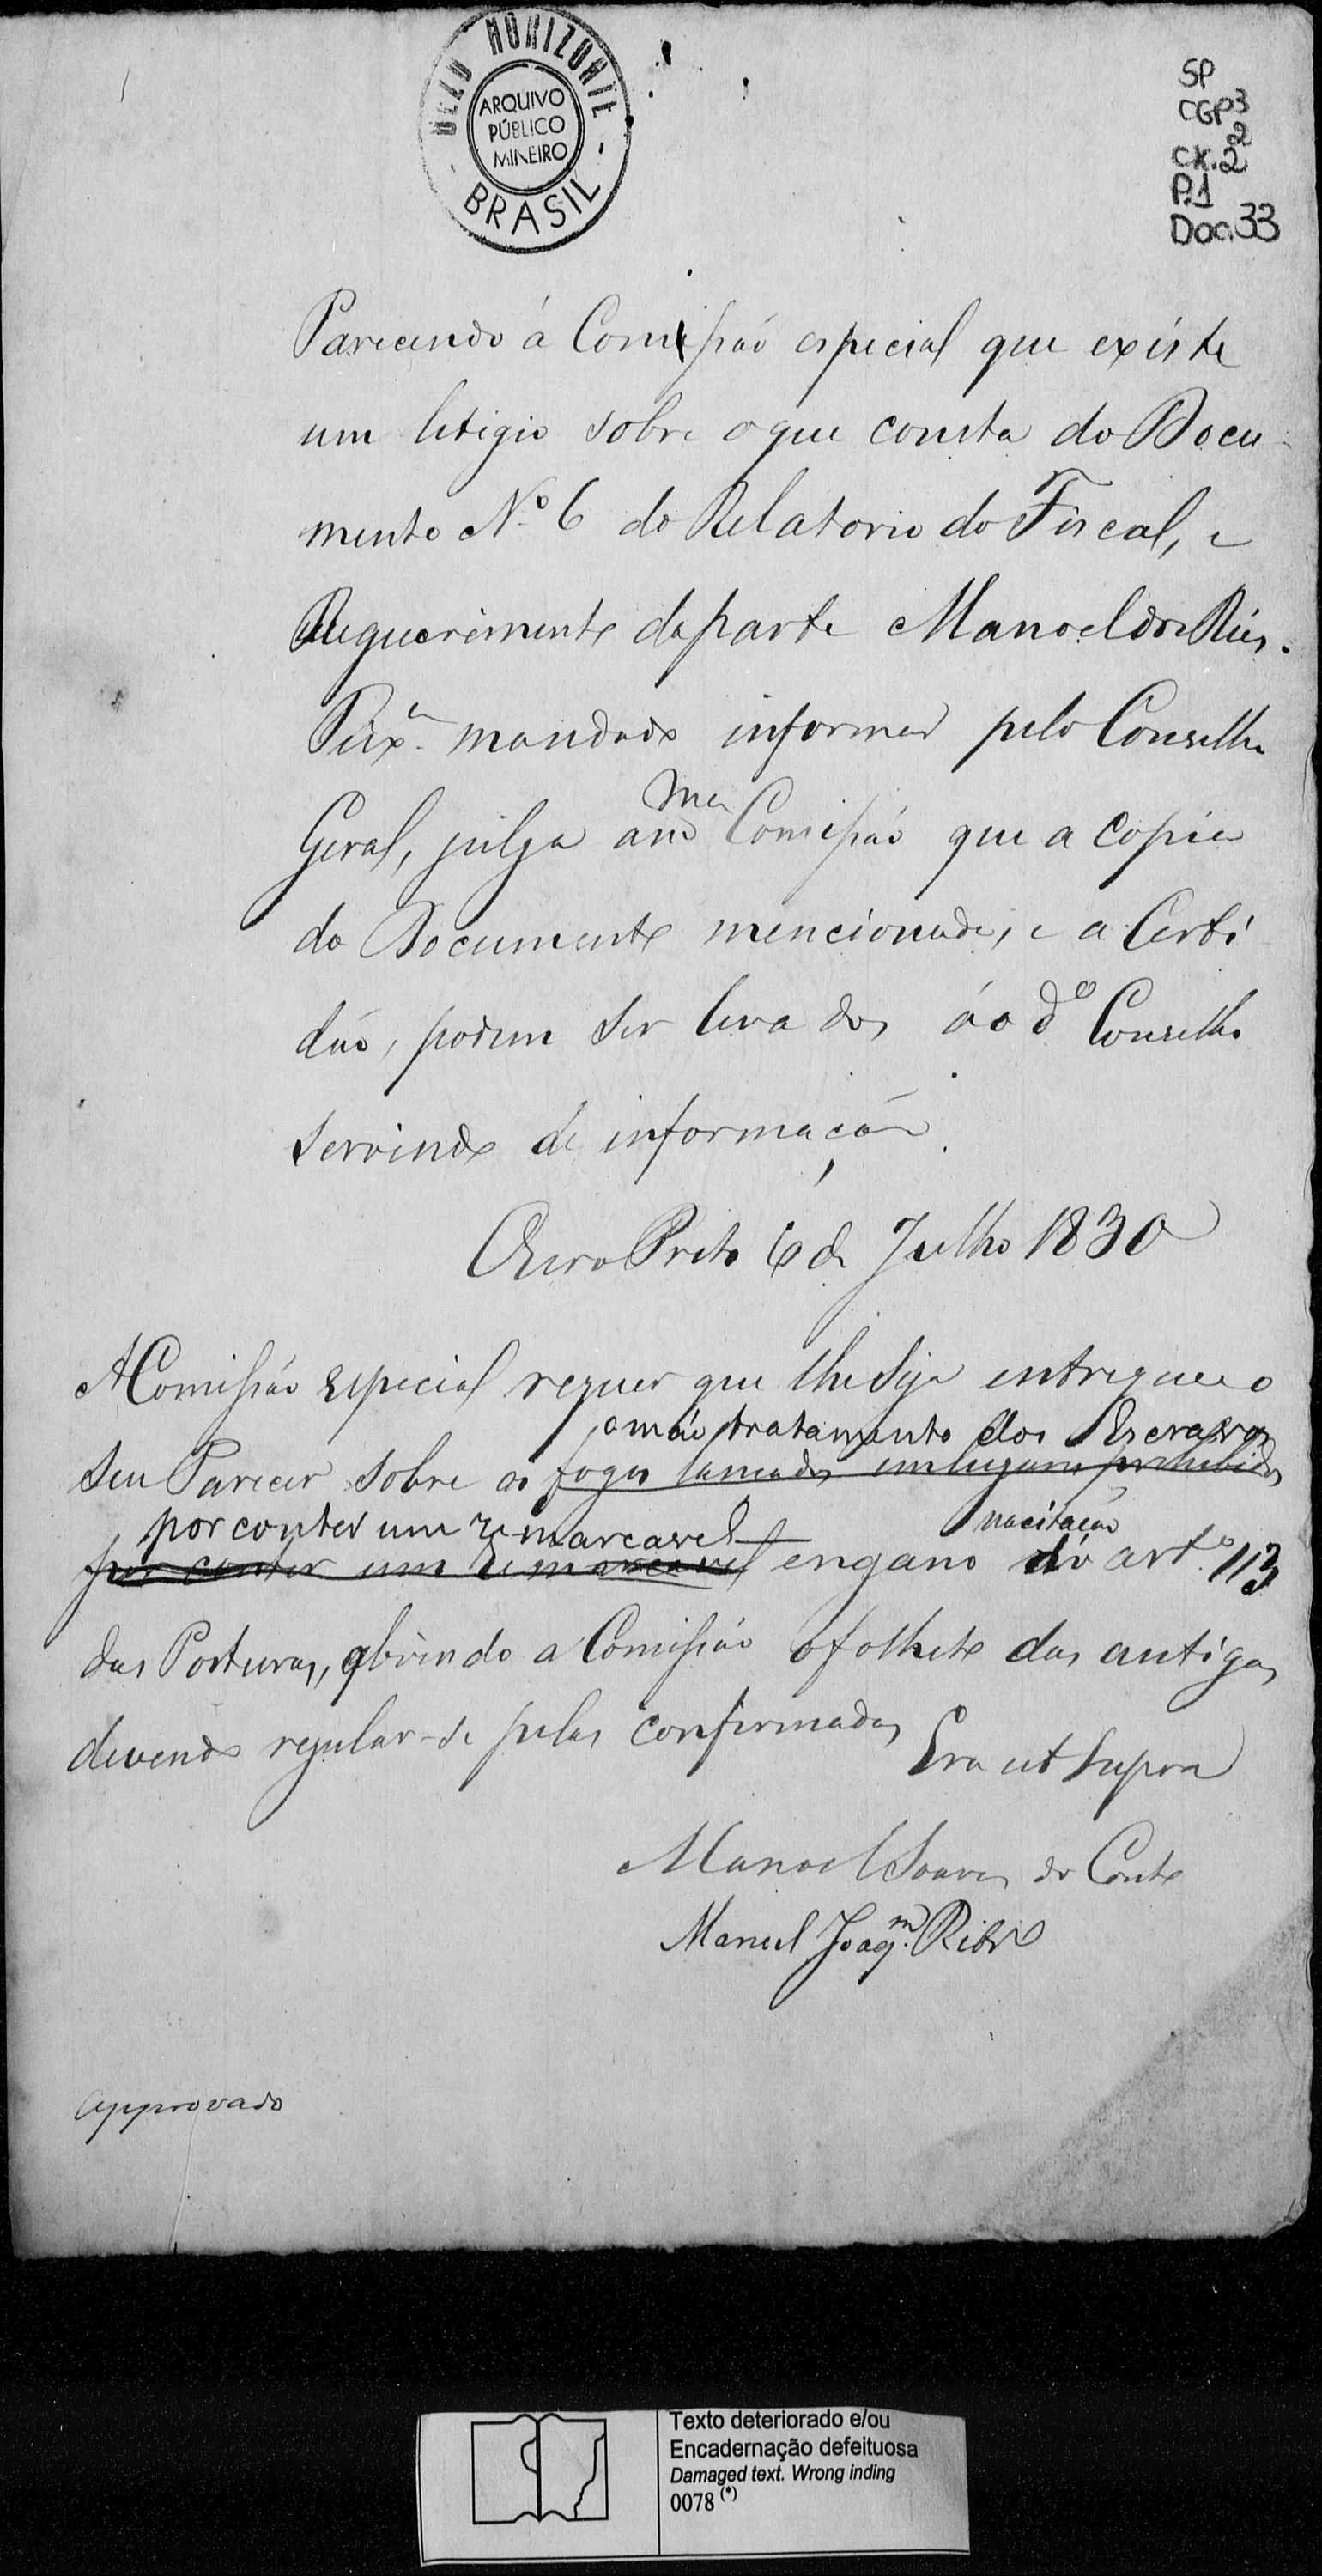 BELO HORIZONTE
ARQUIVO
PÚBLICO
MINEIRO
- BRASIL -
SP
CGP3
2
CX.2
P.1
Doc.33
Parecendo á Comissaó especial que existe
um litigio sobre oque consta do Docu-
mento Nº 6 do Relatorio do Fiscal, e
Requerimento daparte Manoel dos Reis
Peixº mandado informar pelo Conselho
Geral, julga a mma Comissaó que a copia
do Documento mencionado, e a Certi
daó, podem ser levados áo dº Conselho
servindo de informaçaó.
Ouro Preto 6 de Julho 1830
A Comissaó Especial requer que lhe seja entregue o
o máo tratamento dos Escravos
seu Parecer sobre os fogos lancados em lugares prohibidos
por conter um remarcavel nacitacaó
por conter um remarcavel engano do artº 113
das Posturas, abrindo a Comissaó ofolheto das antigas,
devendo regular-se pelas confirmadas Era ut supra
Manoel Soares do Couto
Manoel Joaqm. Ribrº
Approvado
Texto deteriorado e/ou
Encadernação defeituosa
Damaged text. Wrong inding
0078 (*)